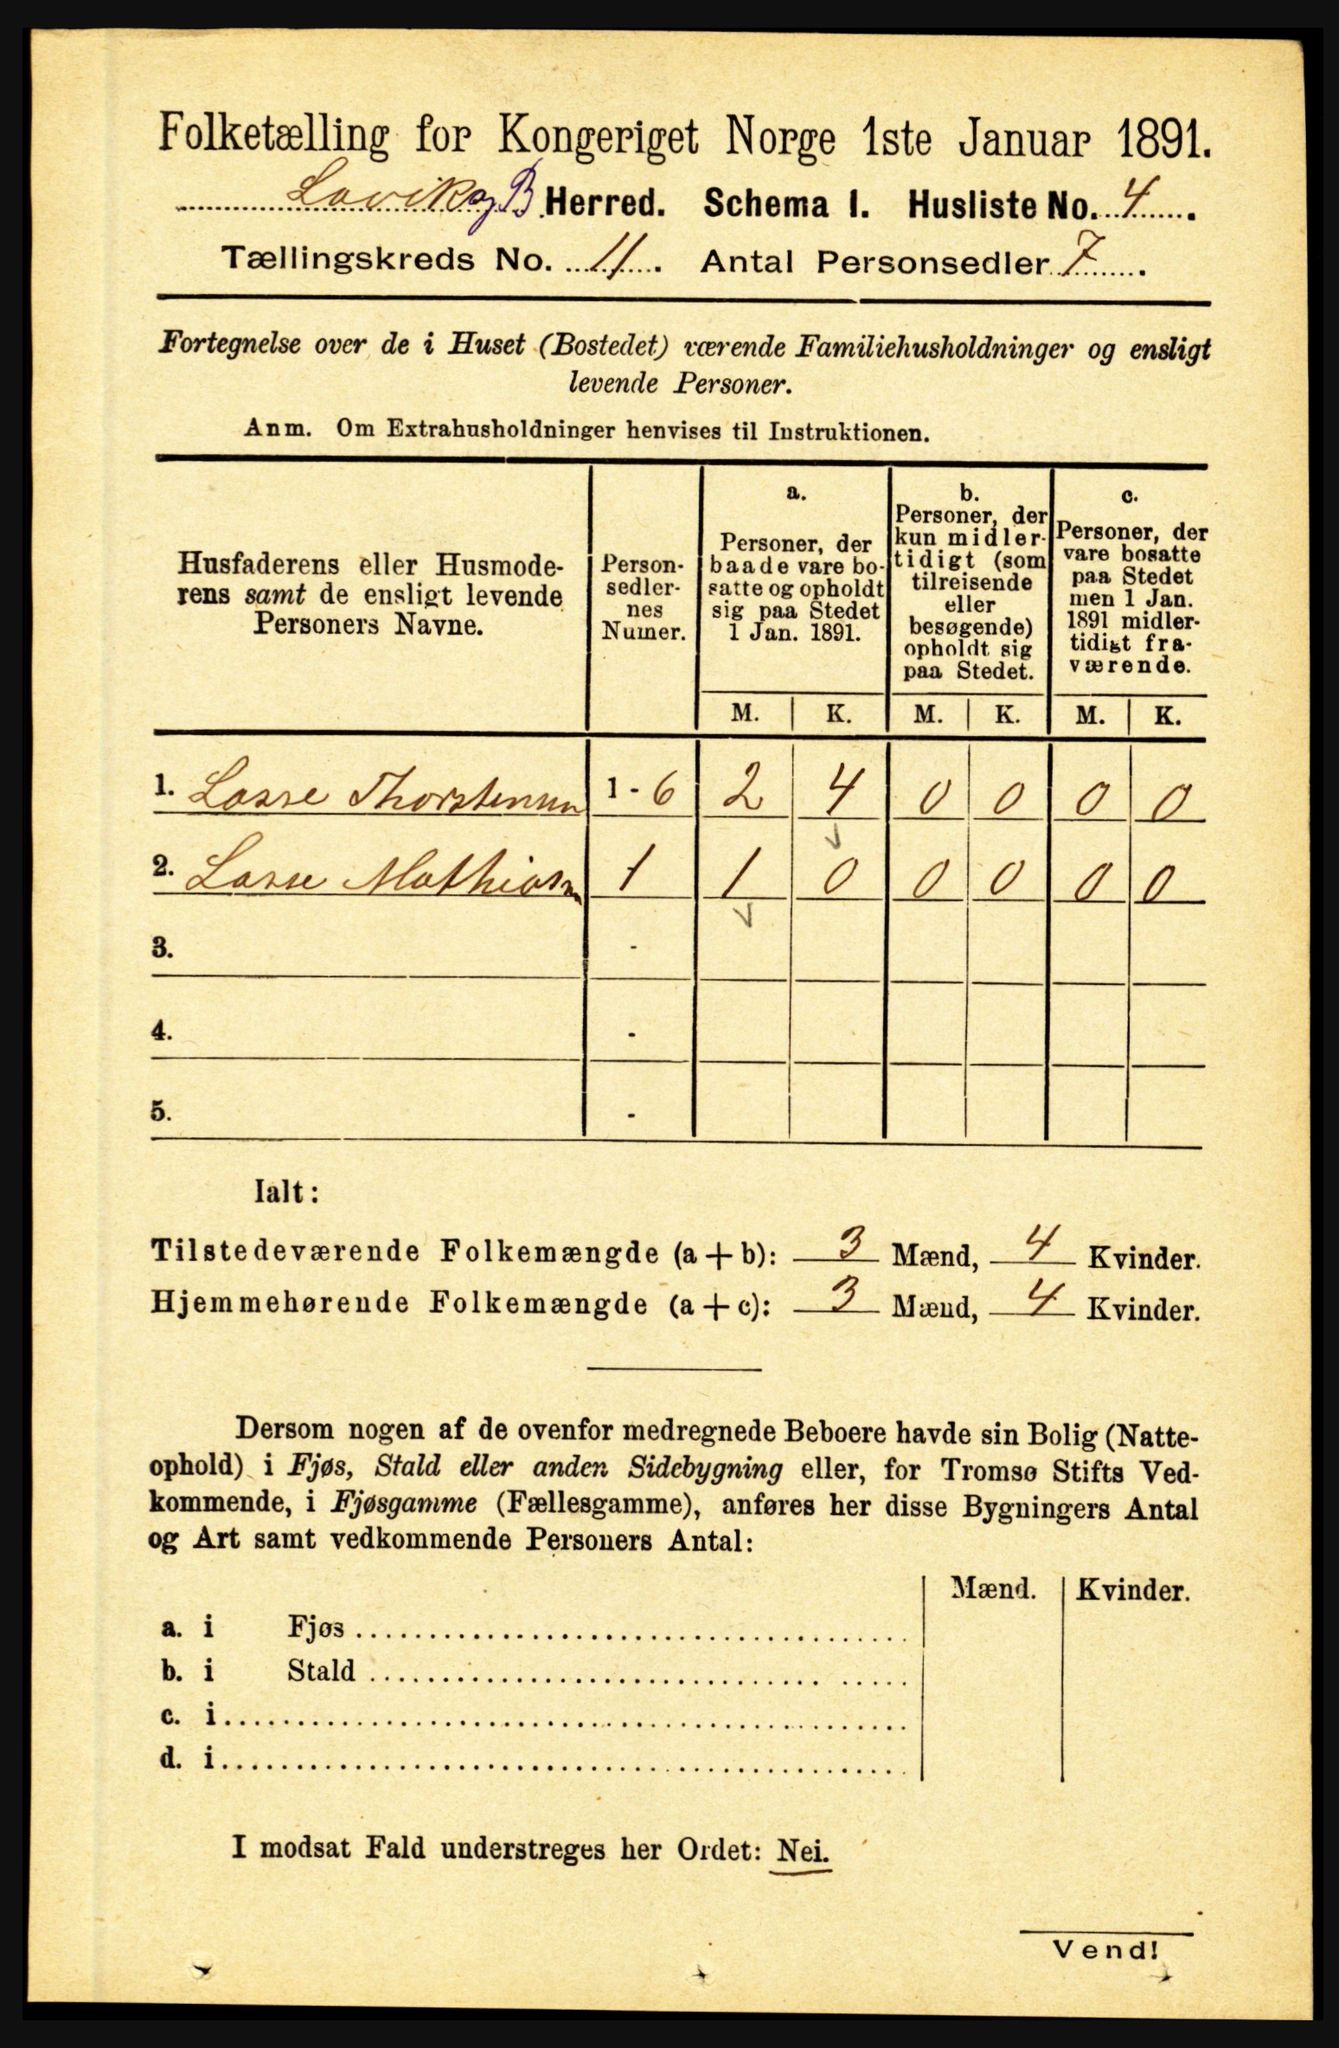 Folketælling for Kongeriget Norge 1ste Januar 1891.
Lavik og B Herred. Schema I. Husliste No. 4.
Tællingskreds No. 11. Antal Personsedler 7.
Fortegnelse over de i Huset (Bostedet) værende Familiehusholdninger og ensligt
levende Personer.
Anm. Om Extrahusholdninger henvises til Instruktionen.
Husfaderens eller Husmode-
rens samt de ensligt levende
Personers Navne.
Person-
sedler-
nes
Numer.
a.
Personer, der
baade vare bo-
satte og opholdt
sig paa Stedet
1 Jan. 1891.
b.
Personer, der
kun midler-
tidigt (som
tilreisende
eller
besøgende)
opholdt sig
paa Stedet.
c.
Personer, der
vare bosatte
paa Stedet
men 1 Jan.
1891 midler-
tidigt fra-
værende.
M. K. M. K. M. K.
1. Lasse Thorstensen 1 - 6 2 4 0 0 0 0
2. Lasse Mathiasn 1 1 0 0 0 0 0
3. -
4. -
5. -
Ialt:
Tilstedeværende Folkemængde (a + b): 3 Mænd, 4 Kvinder.
Hjemmehørende Folkemængde (a + c): 3 Mænd, 4 Kvinder.
Dersom nogen af de ovenfor medregnede Beboere havde sin Bolig (Natte-
ophold) i Fjøs, Stald eller anden Sidebygning eller, for Tromsø Stifts Ved-
kommende, i Fjøsgamme (Fællesgamme), anføres her disse Bygningers Antal
og Art samt vedkommende Personers Antal:
Mænd. Kvinder.
a. i Fjøs
b. i Stald
c. i
d. i
I modsat Fald understreges her Ordet: Nei.
Vend!